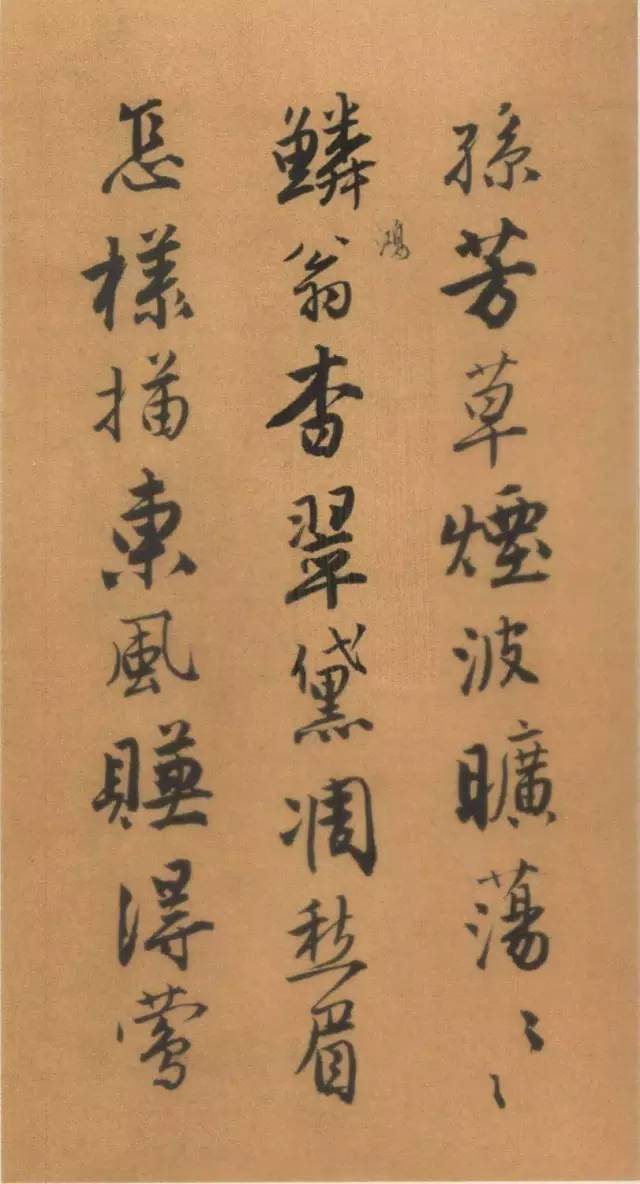 孫芳草煙波曠蕩〻
鱗鴻翁杳翠黛凋愁眉
怎樣描東風賺得鶯